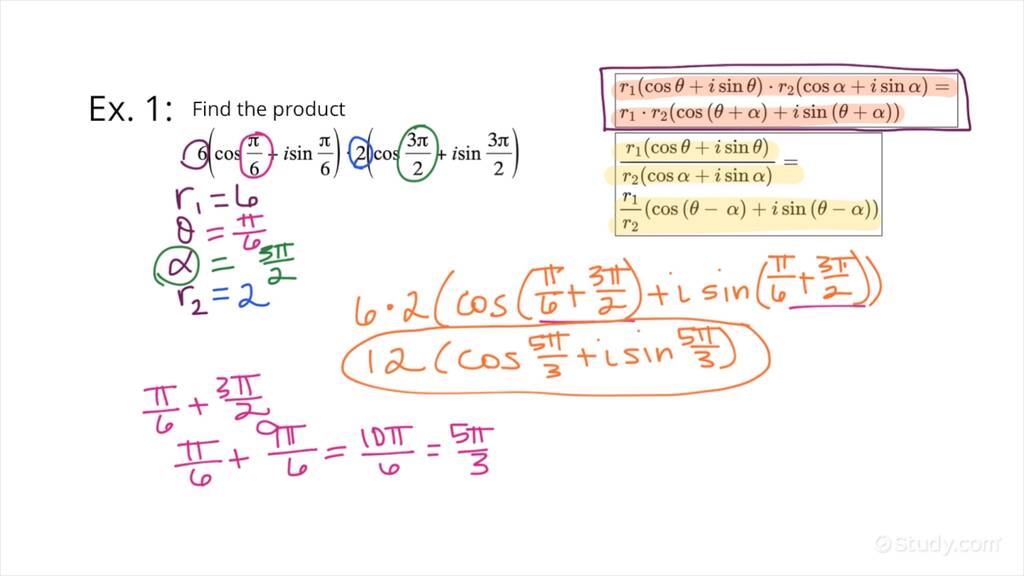 Ex. 1: Find the product
6(cos π/6 + i sin π/6) · 2(cos 3π/2 + i sin 3π/2)
r₁ = 6
θ = π/6
α = 3π/2
r₂ = 2
r₁(cos θ + i sin θ) · r₂(cos α + i sin α) =
r₁ · r₂(cos (θ + α) + i sin (θ + α))
r₁(cos θ + i sin θ)/r₂(cos α + i sin α) =
r₁/r₂ (cos (θ − α) + i sin (θ − α))
6 · 2 (cos (π/6 + 3π/2) + i sin (π/6 + 3π/2))
12 (cos 5π/3 + i sin 5π/3)
π/6 + 3π/2
π/6 + 9π/6 = 10π/6 = 5π/3
Study.com